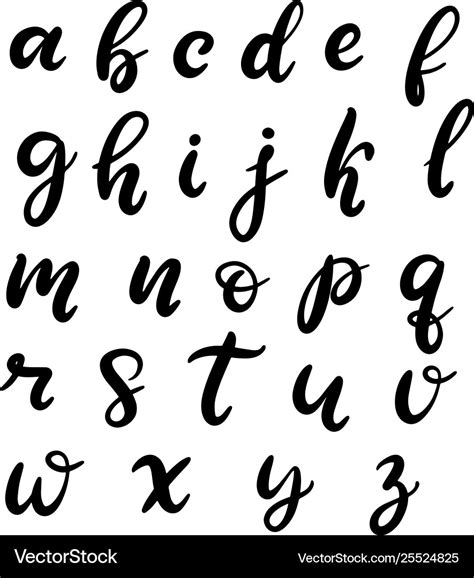 a b c d e f
g h i j k l
m n o p q
r s t u v
w x y z
VectorStock® VectorStock.com/25524825